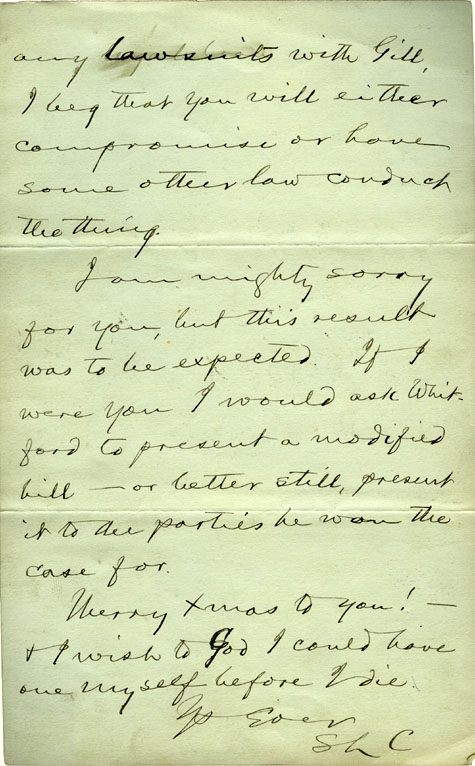 any lawsuits with Gill,
I beg that you will either
compromise or have
some other law conduct
the thing.
I am mighty sorry
for you, but this result
was to be expected. If I
were you I would ask Whit-
ford to present a modified
bill — or better still, present
it to the parties he won the
case for.
Merry Xmas to you! —
& I wish to God I could have
one myself before I die.
Ys Ever
SLC